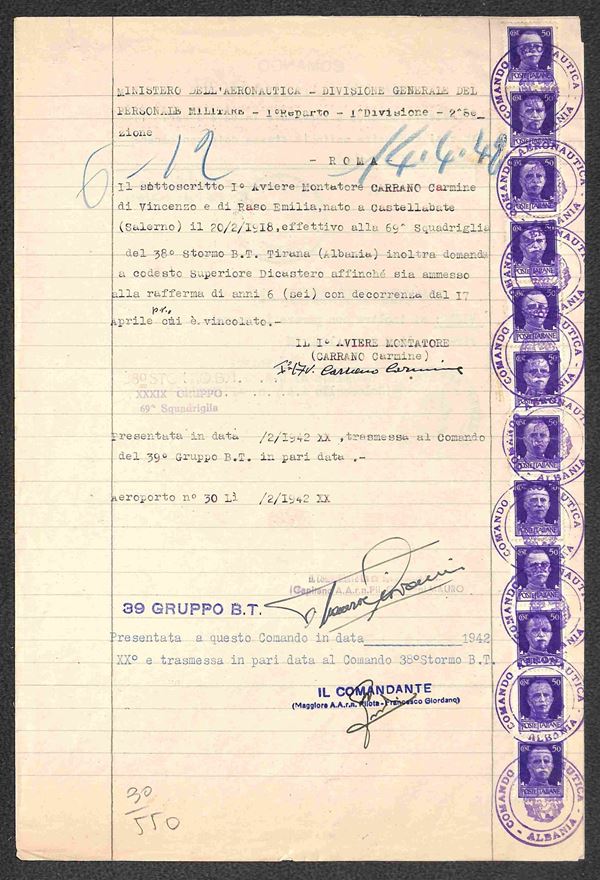 MINISTERO DELL'AERONAUTICA - DIVISIONE GENERALE DEL
PERSONALE MILITARE - 1°Reparto - 1^Divisione - 2^Se_
zione
6-12
- ROMA -
14.4.42
Il sottoscritto I° Aviere Montatore CARRANO Carmine
di Vincenzo e di Raso Emilia,nato a Castellabate
(Salerno) il 20/2/1918,effettivo alla 69^ Squadriglia
del 38° Stormo B.T. Tirana (Albania) inoltra domanda
a codesto Superiore Dicastero affinché sia ammesso
alla rafferma di anni 6 (sei) con decorrenza dal I7
Aprile cui è vincolato.-
IL I° AVIERE MONTATORE
(CARRANO Carmine)
I° AV. Carrano Carmine
38° STORMO B.T.
XXXIX GRUPPO
69ª Squadriglia
Presentata in data /2/1942 XX ,trasmessa al Comando
del 39° Gruppo B.T. in pari data .-
Aeroporto n° 30 Lì /2/1942 XX
(Capitano A.A.r.n.
39 GRUPPO B.T.
Presentata a questo Comando in data 1942
XX° e trasmessa in pari data al Comando 38°Stormo B.T.
IL COMANDANTE
(Maggiore A.A.r.n. Pilota - Francesco Giordano)
30
550
CENT. 50
POSTE ITALIANE
COMANDO AERONAUTICA - ALBANIA -